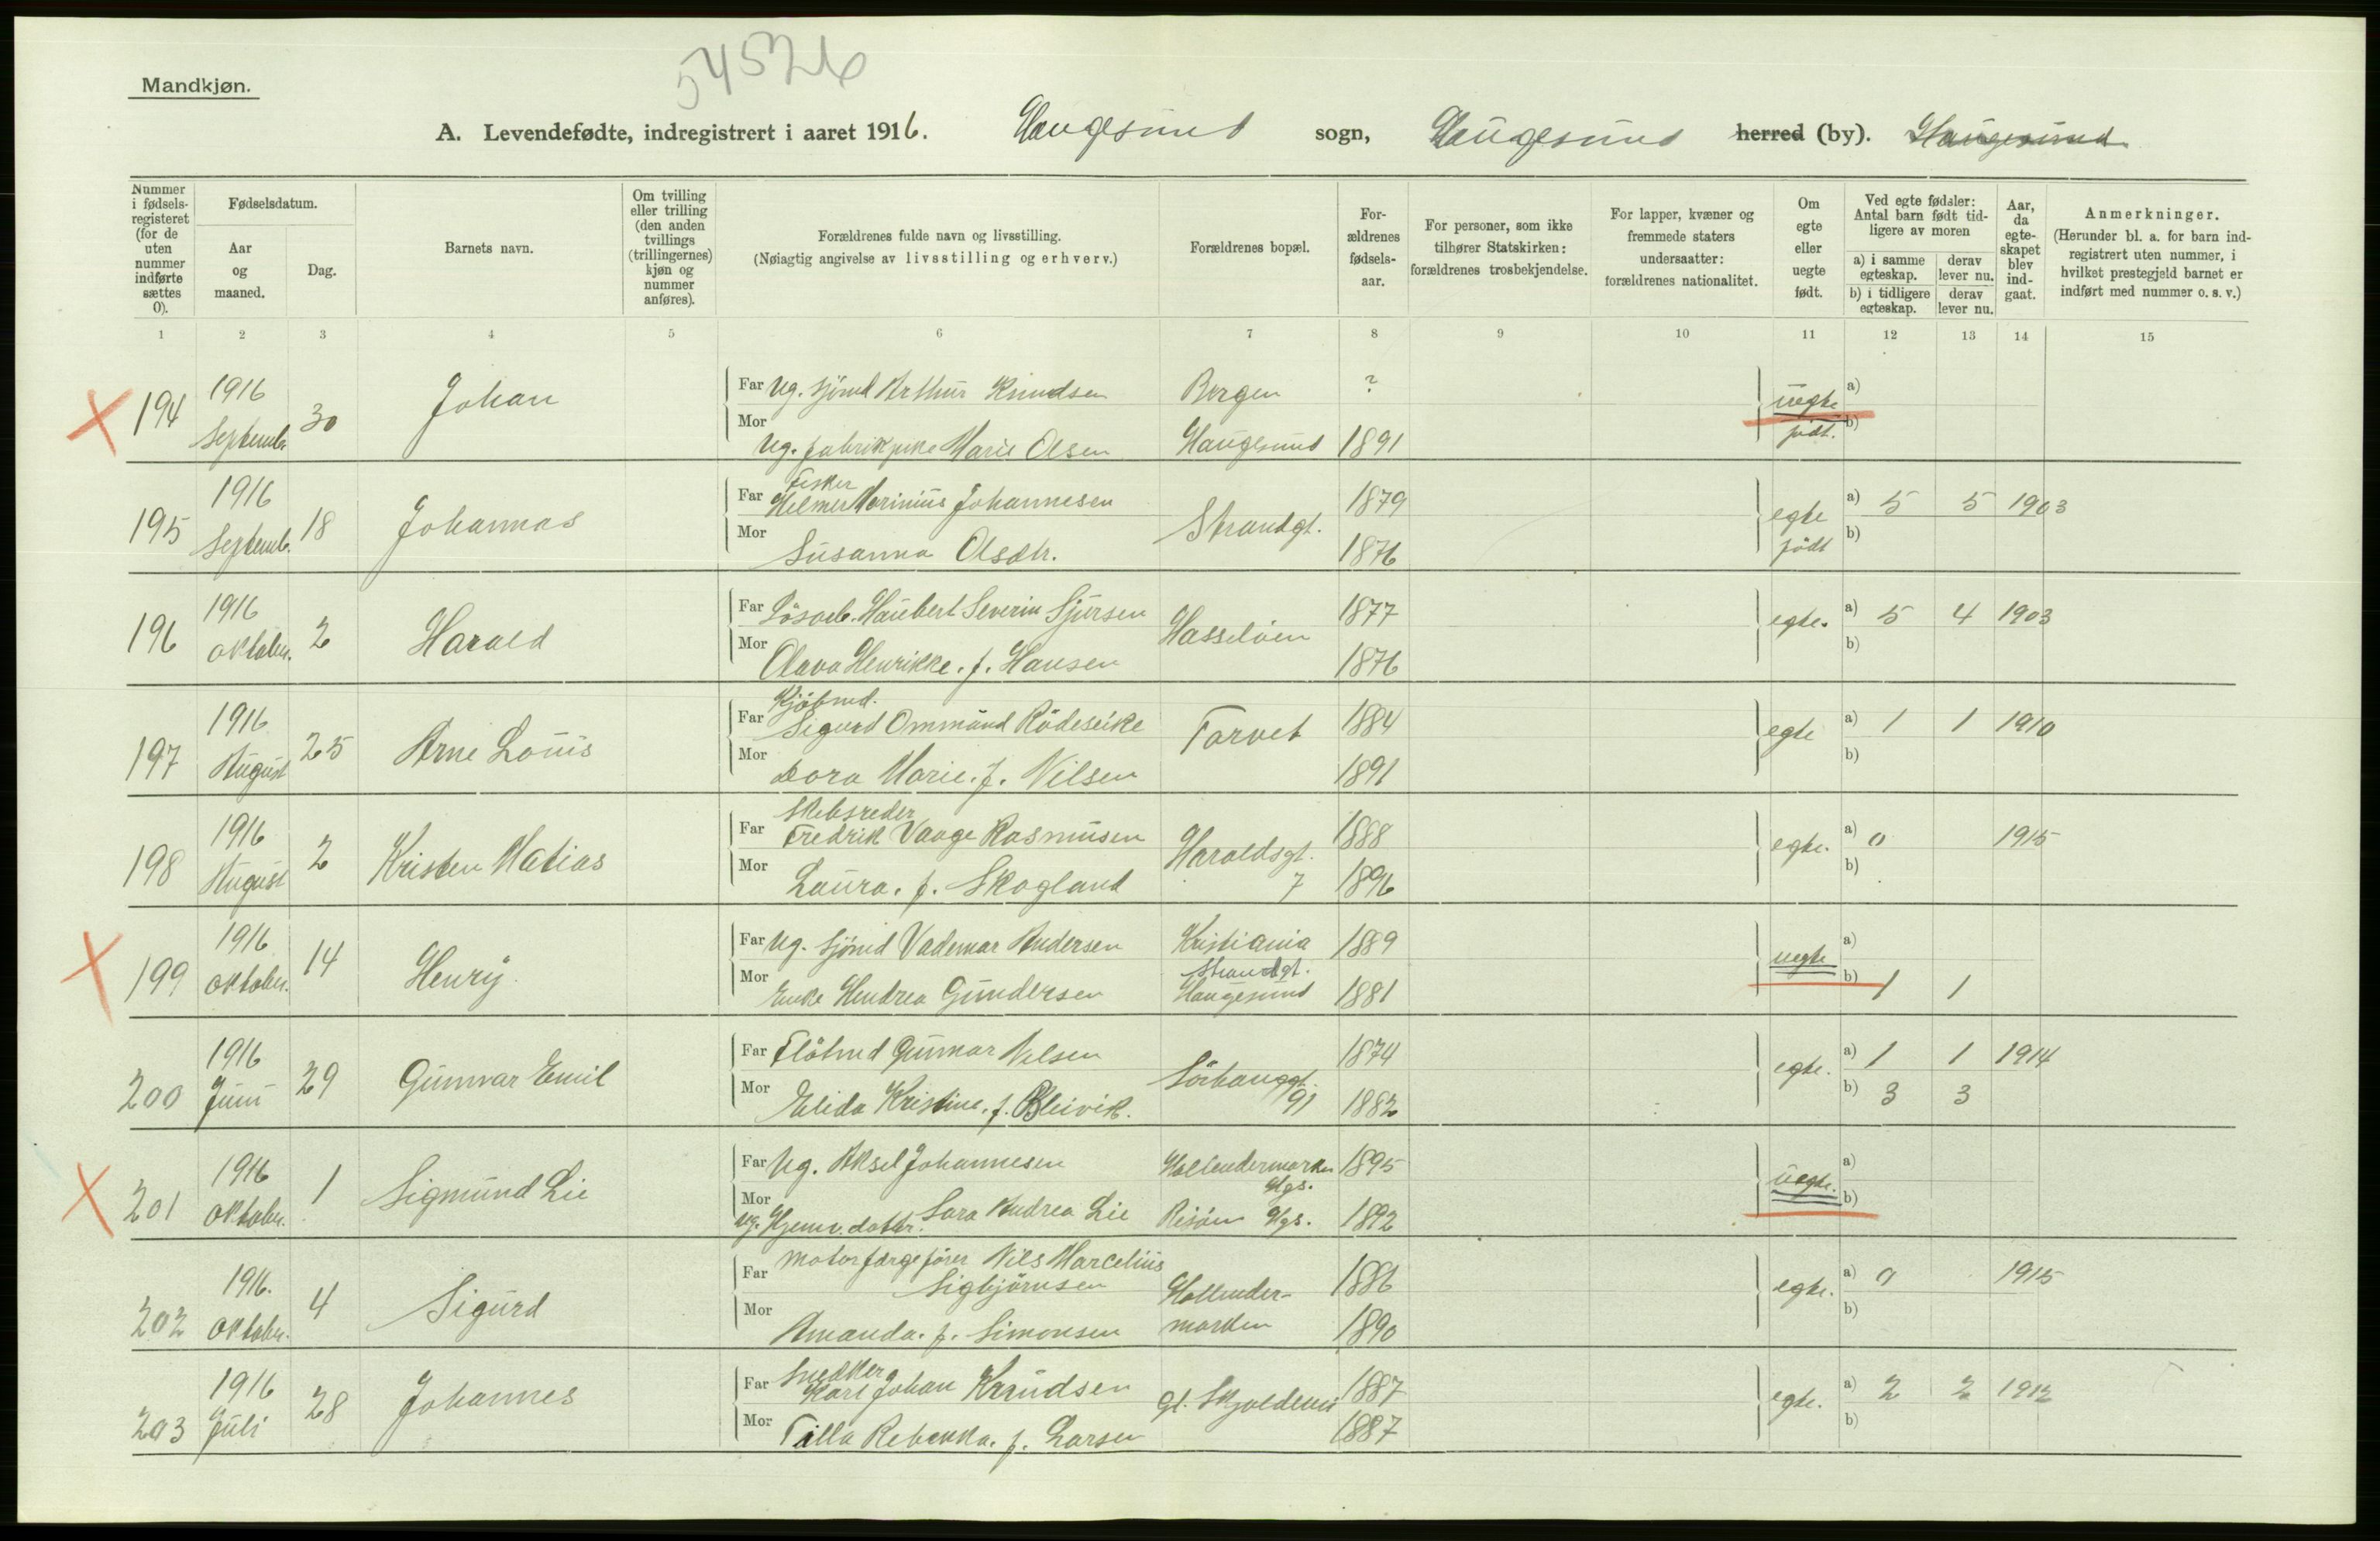 54526
Mandkjøn.
A. Levendefødte, indregistrert i aaret 1916. Haugesund sogn, Haugesund herred (by). Haugesund
Nummer i fødselsregisteret (for de uten nummer indførte sættes 0).
Fødselsdatum.
Aar og maaned.
Dag.
Barnets navn.
Om tvilling eller trilling (den anden tvillings (trillingernes) kjøn og nummer anføres).
Forældrenes fulde navn og livsstilling.
(Nøiagtig angivelse av livsstilling og erhverv.)
Forældrenes bopæl.
Forældrenes fødselsaar.
For personer, som ikke tilhører Statskirken: forældrenes trosbekjendelse.
For lapper, kvæner og fremmede staters undersaatter: forældrenes nationalitet.
Om egte eller uegte født.
Ved egte fødsler: Antal barn født tidligere av moren
a) i samme egteskap. derav lever nu.
b) i tidligere egteskap. derav lever nu.
Aar, da egteskapet blev indgaat.
Anmerkninger.
(Herunder bl. a. for barn indregistrert uten nummer, i hvilket prestegjeld barnet er indført med nummer o. s. v.)
1 2 3 4 5 6 7 8 9 10 11 12 13 14 15
194 1916 Septembr 30 Johan
Far Ug. sjömd Arthur Knudsen Bergen ?
Mor Ug. fabrikpike Marie Olsen Haugesund 1891
uegte født. a) b)
195 1916 Septemb. 18 Johannas
Far Fisker Helmer Marinius Johannesen Strandgt. 1879
Mor Susanna Olsdtr. 1876
egte født a) 5 5 1903 b)
196 1916 Oktober. 2 Harald
Far Lösarb. Haubert Severin Sjursen Hasselöen 1877
Mor Olava Henrikke. f. Hansen 1876
egte. a) 5 4 1903 b)
197 1916 August 25 Arne Louis
Far Kjöbmd. Sigurd Ommund Rödeseike Torvet 1884
Mor Dora Marie. f. Nilsen 1891
egte a) 1 1 1910 b)
198 1916 August 2 Kristen Matias
Far Skibsreder Fredrik Vaage Rasmusen Haraldsgt. 7 1888
Mor Laura. f. Skogland 1896
egte. a) 0 1915 b)
199 1916 Oktober. 14 Henry
Far Ug. sjömd Vademar Andersen Kristiania 1889
Mor Enke Hendrea Gundersen Strandgt. Haugesund 1881
uegte a) b) 1 1
200 1916 Juni 29 Gunnvar Emil
Far Flötmd Gunnar Nilsen Sörhauggt. 91 1874
Mor Elida Kristine. f. Bleivik. 1882
egte. a) 1 1 1914 b) 3 3
201 1916 Oktober. 1 Sigmund Lie
Far Ug. Aksel Johannesen Hollendermarken Hgs. 1895
Mor Ug. Hjemv. datter. Sara Andrea Lie Risöen Hgs. 1892
uegte. a) b)
202 1916. Oktober. 4 Sigurd
Far Motorfærgefører Nils Marcelius Sigbjörnsen Hollendermarken 1886
Mor Amanda. f. Simonsen 1890
egte. a) 0 1915 b)
203 1916 Juli 28 Johannes
Far Snedker Karl Johan Knudsen Gl. Skjoldevei 1887
Mor Tilla Rebekka. f. Larsen 1887
egte. a) 2 2 1912 b)